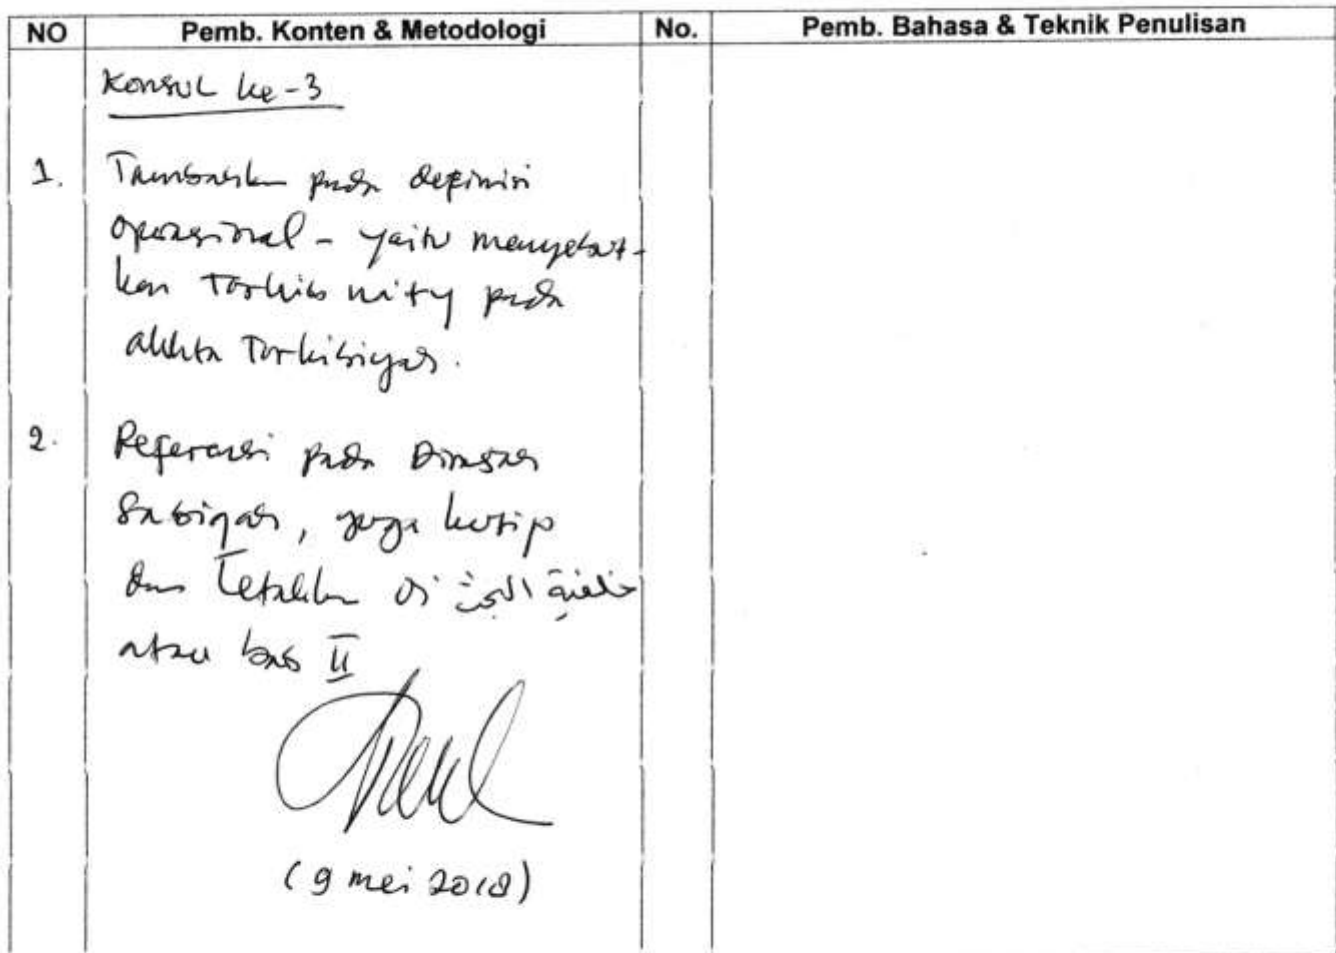 NO Pemb. Konten & Metodologi No. Pemb. Bahasa & Teknik Penulisan
Konsul ke-3
1. Tambahkan pada definisi
operasional - yaitu menyebut-
kan Tarkib pada
akhta Tarkibiyah.
2. Referensi pada Dirasah
Sabiqah, juga kutip
dan Letakkan di خلفية البحث
atau bab II
(9 mei 2018)